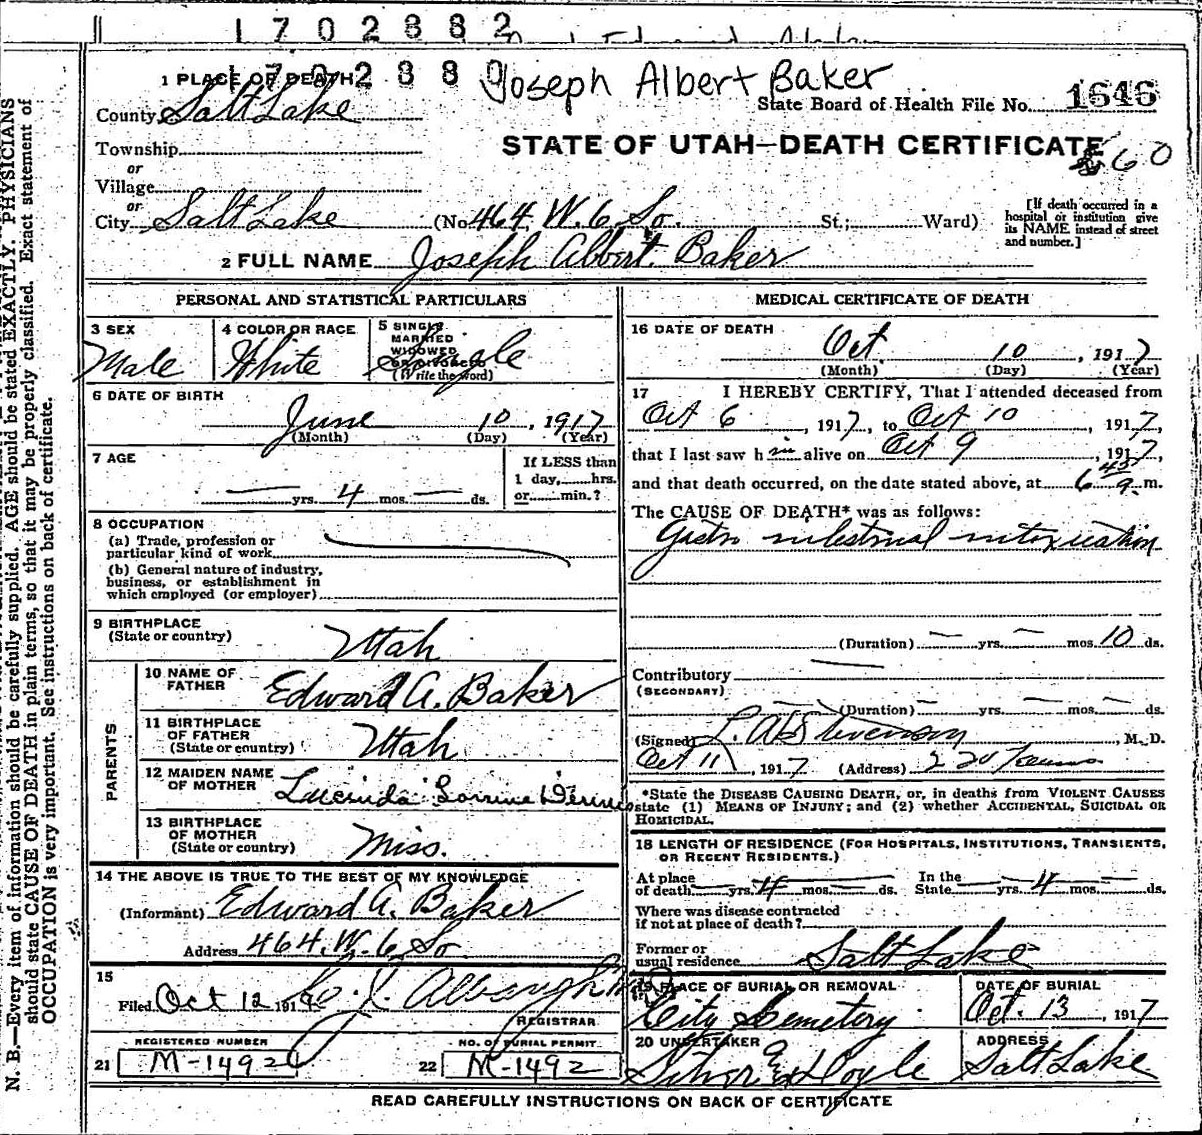 1702882
1702880
Joseph Albert Baker
1 PLACE OF DEATH
County Salt Lake
State Board of Health File No. 1646
Township
STATE OF UTAH—DEATH CERTIFICATE
60
or
Village
or
City Salt Lake (No. 464 W. 6 So. St.; Ward)
[If death occurred in a
hospital or institution give
its NAME instead of street
and number.]
2 FULL NAME Joseph Albert Baker
PERSONAL AND STATISTICAL PARTICULARS
3 SEX
Male
4 COLOR OR RACE
White
5 SINGLE
MARRIED
WIDOWED
OR DIVORCED
(Write the word)
Single
6 DATE OF BIRTH
June 10, 1917
(Month) (Day) (Year)
7 AGE
— yrs. 4 mos. — ds.
If LESS than
1 day, hrs.
or min.?
8 OCCUPATION
(a) Trade, profession or
particular kind of work
(b) General nature of industry,
business, or establishment in
which employed (or employer)
9 BIRTHPLACE
(State or country)
Utah
PARENTS
10 NAME OF
FATHER
Edward A. Baker
11 BIRTHPLACE
OF FATHER
(State or country)
Utah
12 MAIDEN NAME
OF MOTHER
Lucinda
13 BIRTHPLACE
OF MOTHER
(State or country)
Miss.
14 THE ABOVE IS TRUE TO THE BEST OF MY KNOWLEDGE
(Informant) Edward A. Baker
Address 464 W. 6 So
15
Filed Oct 12 191
REGISTRAR
REGISTERED NUMBER
21 M-1492
NO. OF BURIAL PERMIT
22 M-1492
MEDICAL CERTIFICATE OF DEATH
16 DATE OF DEATH
Oct. 10, 1917
(Month) (Day) (Year)
17 I HEREBY CERTIFY, That I attended deceased from
Oct 6, 1917, to Oct 10, 1917,
that I last saw him alive on Oct 9, 1917,
and that death occurred, on the date stated above, at 6 45 a. m.
The CAUSE OF DEATH* was as follows:
Gastro intestinal intoxication
(Duration) — yrs. — mos. 10 ds.
Contributory —
(SECONDARY)
(Duration) — yrs. — mos. — ds.
(Signed) Stevenson, M. D.
Oct 11, 1917 (Address) 220 Kearns
*State the DISEASE CAUSING DEATH, or, in deaths from VIOLENT CAUSES
state (1) MEANS OF INJURY; and (2) whether ACCIDENTAL, SUICIDAL OR
HOMICIDAL.
18 LENGTH OF RESIDENCE (FOR HOSPITALS, INSTITUTIONS, TRANSIENTS,
OR RECENT RESIDENTS.)
At place
of death — yrs. 4 mos. — ds.
In the
State — yrs. 4 mos. — ds.
Where was disease contracted
if not at place of death?
Former or
usual residence Salt Lake
19 PLACE OF BURIAL OR REMOVAL
City Cemetery
DATE OF BURIAL
Oct. 13, 1917
20 UNDERTAKER
Doyle
ADDRESS
Salt Lake
READ CAREFULLY INSTRUCTIONS ON BACK OF CERTIFICATE
N. B.—Every item of information should be carefully supplied. AGE should be stated EXACTLY. PHYSICIANS
should state CAUSE OF DEATH in plain terms, so that it may be properly classified. Exact statement of
OCCUPATION is very important. See instructions on back of certificate.